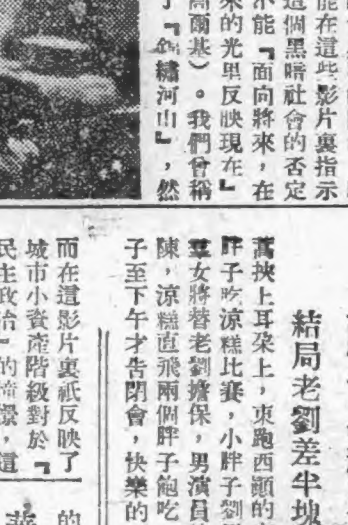 能在這些影片裏指示
這個黑暗社會的否定
不能『面向將來，在
來的光里反映現在』
高爾基）。我們曾稱
了『錦繡河山』，然
結局老劉差半塊
萬挾上耳朶上，東跑西顚的
胖子吃涼糕比賽，小胖子劉
羣女將替老劉擔保，男演員
陳，涼糕直飛兩個胖子飽吃
子至下午才告閉會，快樂的
而在這影片裏祇反映了
城市小資產階級對於『
民主政治』的憧憬，這
的